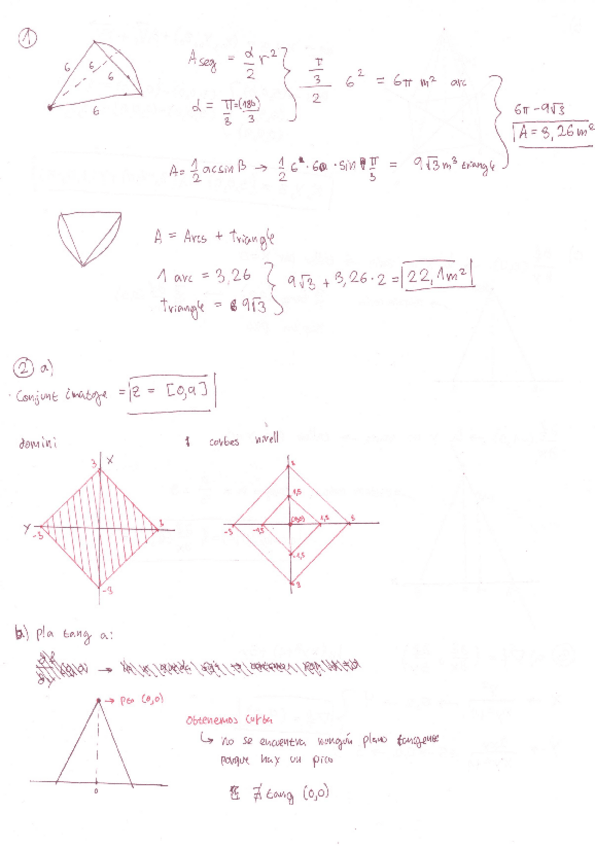 1
6 6 6 6
A seg = α/2 r²
α = π/3 = (180/3)
π/3 / 2 6² = 6π m² arc
6π - 9√3
A = 3,26 m²
A = 1/2 a c sin β → 1/2 6 · 6 · sin π/3 = 9√3 m³ triangle
A = Arcs + triangle
1 arc = 3,26
triangle = 9√3
9√3 + 3,26 · 2 = 22,1 m²
2 a)
· Conjunt imatge = z = [0,9]
domini
corbes nivell
3 X
Y -3 3
-3
3
1,5
-3 -1,5 (0,0) 1,5 3
-1,5
3
b) pla tang a:
→ pto (0,0)
0
Obtenemos corba
↳ no se encuentra ningún plano tangente
porque hay un pico
∄ tang (0,0)